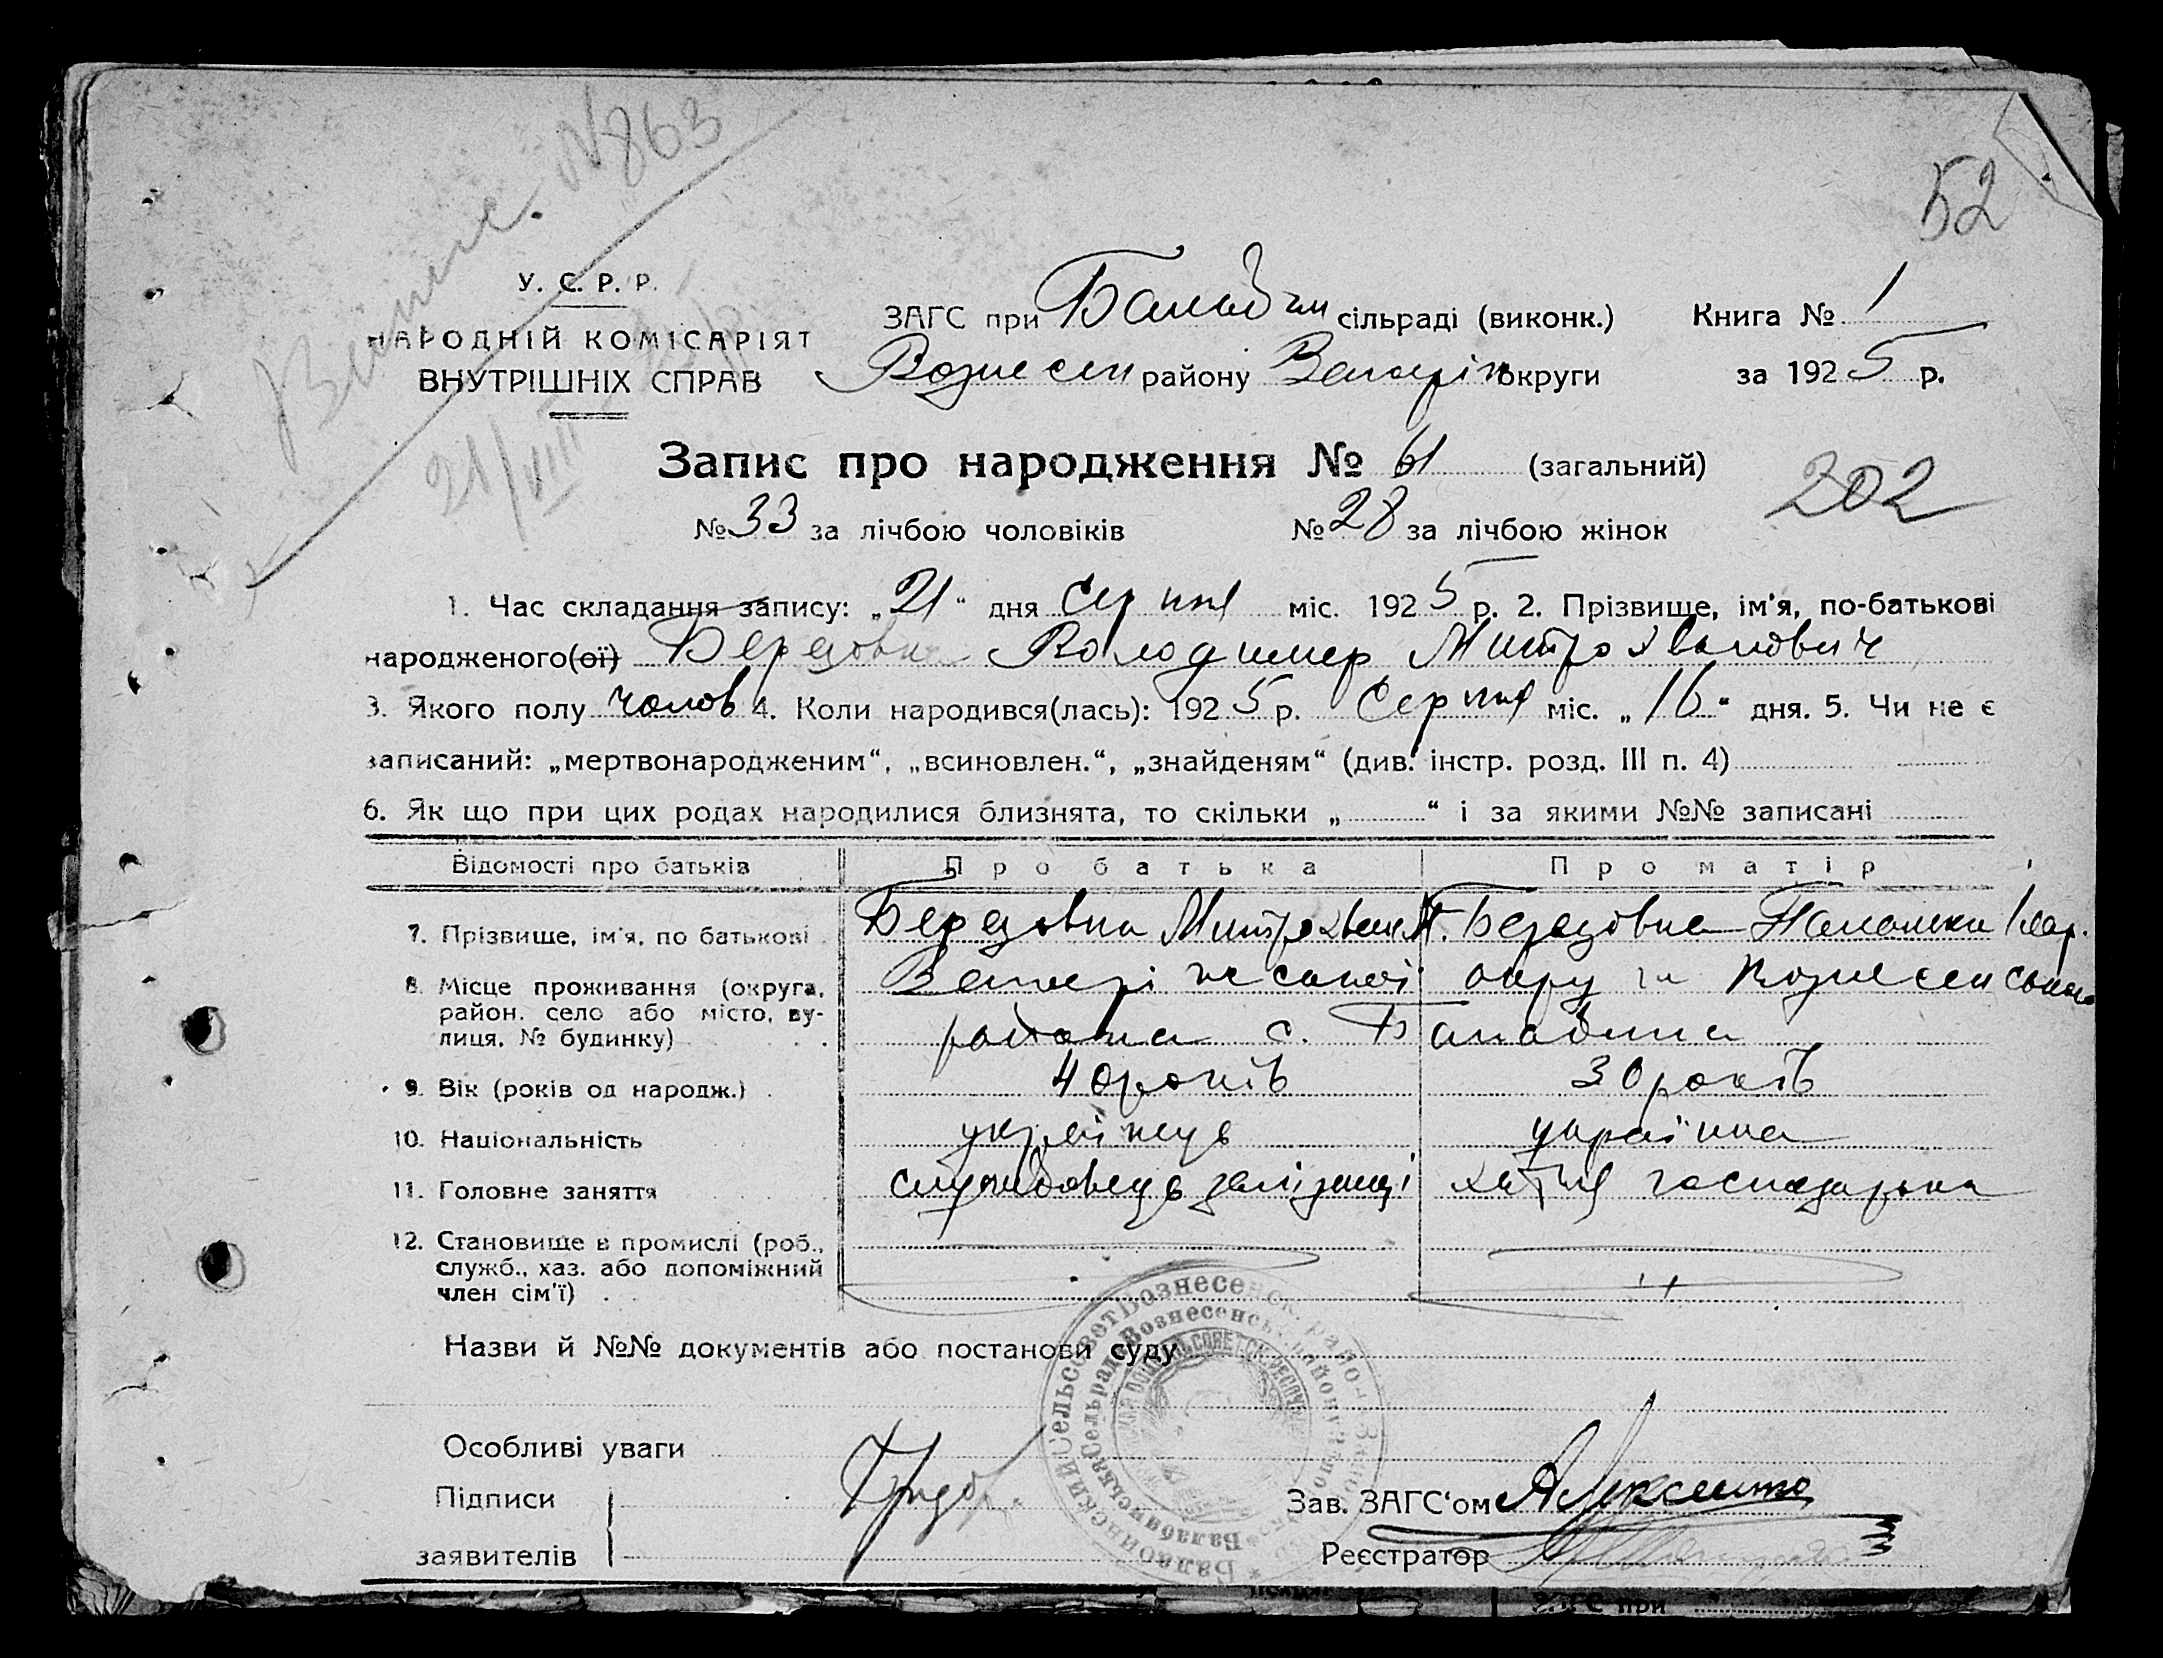 Випис. N863
52
У. С. Р. Р.
НАРОДНІЙ КОМІСАРІЯТ
ВНУТРІШНІХ СПРАВ
21/VIII
ЗАГС при Балабин сільраді (виконк.) Книга № 1
Вознесен району Запоріж округи за 1925 р.
Запис про народження № 61 (загальний)
202
№ 33 за лічбою чоловіків № 28 за лічбою жінок
1. Час складання запису: „21" дня Серпня міс. 1925 р. 2. Прізвище, ім'я, по-батькові
народженого(ої) Володимер Митрофанович
3. Якого полу чолов 4. Коли народився(лась): 1925 р. Серпня міс. „16" дня. 5. Чи не є
записаний: „мертвонародженим“, „всиновлен.“, „знайденям“ (див. інстр. розд. III п. 4)
6. Як що при цих родах народилися близнята, то скільки „ “ і за якими №№ записані
Відомості про батьків Про батька Про матір
7. Прізвище, ім'я, по батькові
8. Місце проживання (округа, Запоріжської округи Вознесенського
район, село або місто, ву-
лиця, № будинку) района с. Балабина
9. Вік (років од народж.) 40 років 30 років
10. Національність українець українка
11. Головне заняття службовець залізниці хатня господарька
12. Становище в промислі (роб.,
служб., хаз. або допоміжний
член сім'ї)
Назви й №№ документів або постанови суду
Особливі уваги
Підписи
заявителів
Зав. ЗАГС'ом
Реєстратор